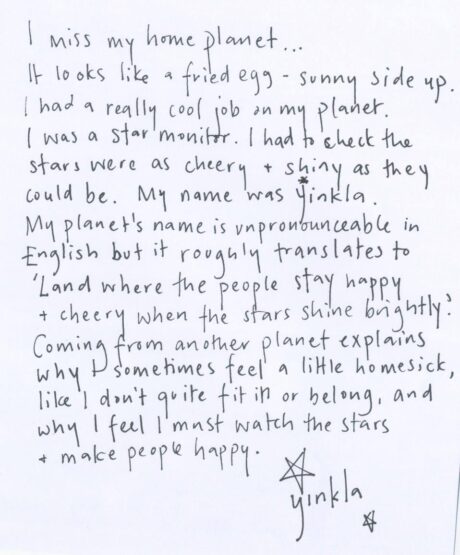 I miss my home planet...
It looks like a fried egg - sunny side up.
I had a really cool job on my planet.
I was a star monitor. I had to check the
stars were as cheery + shiny as they
could be. My name was Yinkla.
My planet's name is unpronounceable in
English but it roughly translates to
'Land where the people stay happy
+ cheery when the stars shine brightly'.
Coming from another planet explains
why I sometimes feel a little homesick,
like I don't quite fit in or belong, and
why I feel I must watch the stars
+ make people happy.
yinkla